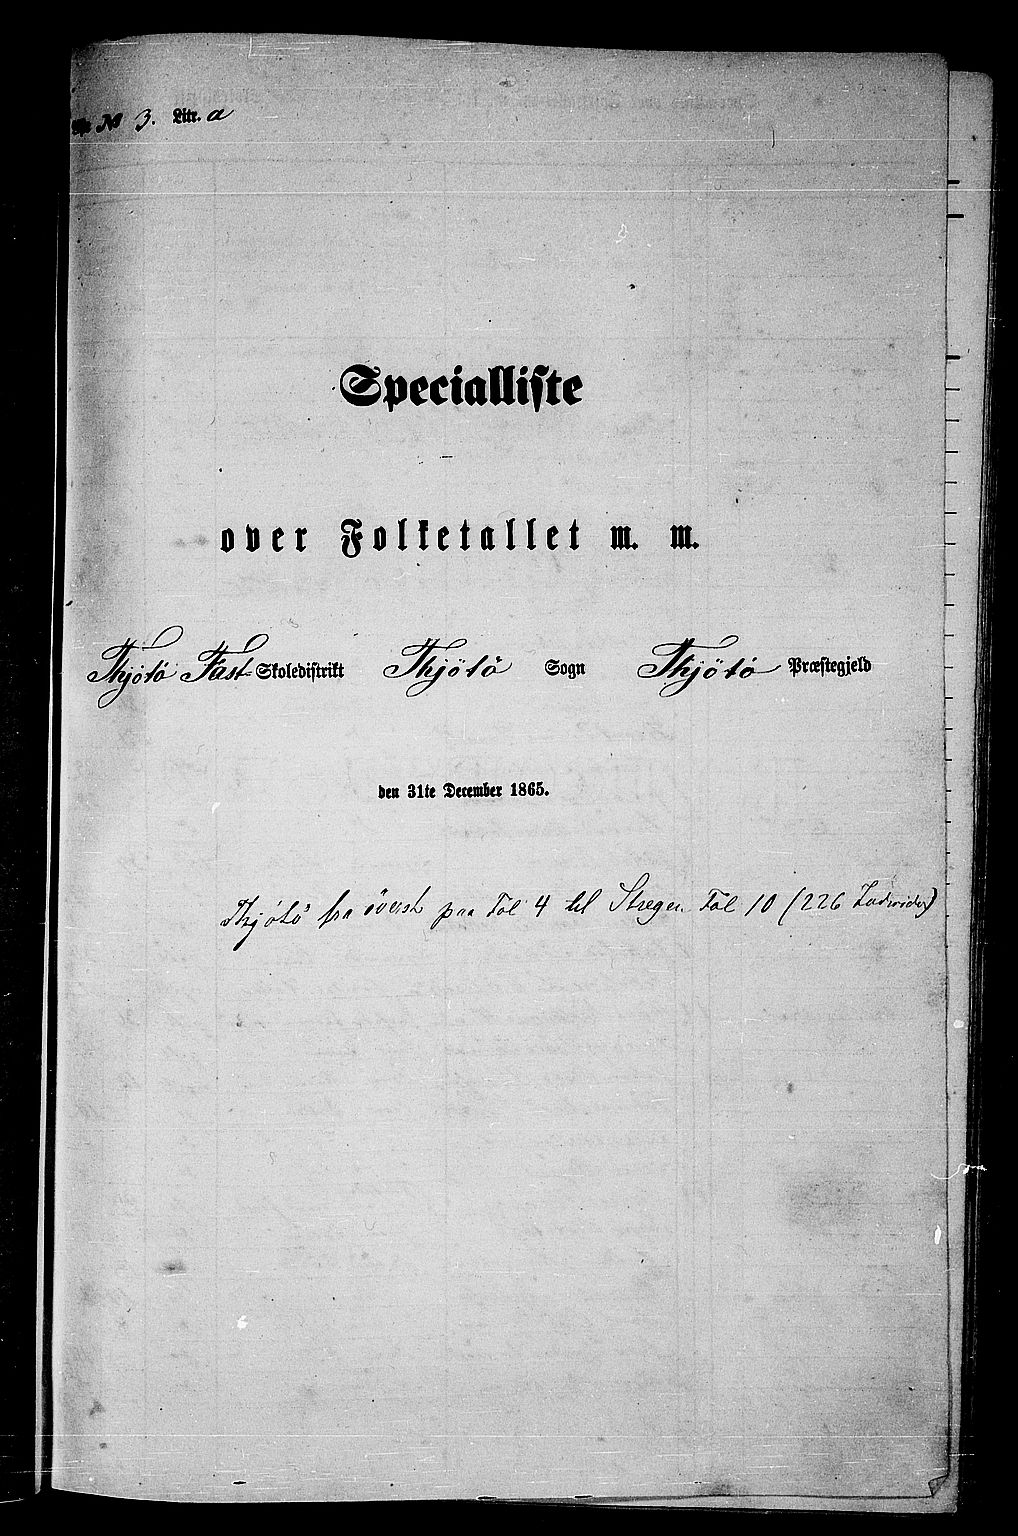 № 3. Litr. a
Specialliste
over Folketallet m. m.
Thjötö Fast- Skoledistrikt Thjötö Sogn Thjötö Præstegjeld
den 31te December 1865.
Thjötö fra överst paa Fol 4 til Stregen Fol 10 (226 Individer)